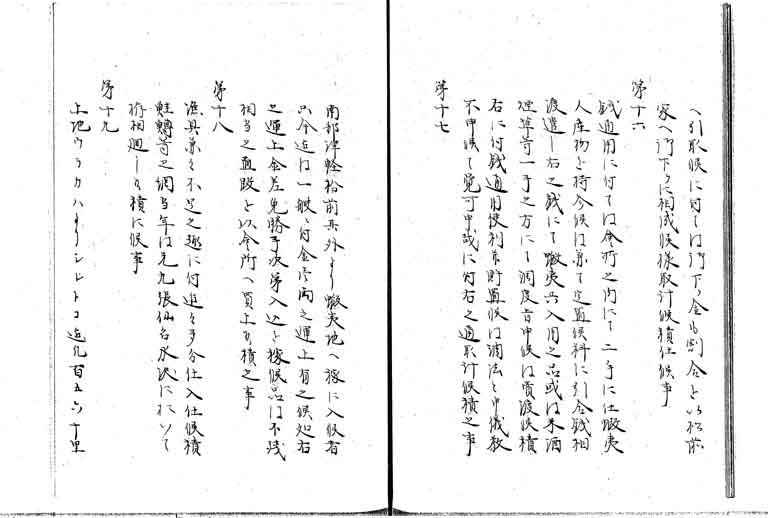 へ引取候に付ては御下ケ金も割合を以松前
家へ御下ケに相成候様取計候積仕候事
第十六
銭通用に付ては会所之内にて二手に仕蝦夷
人産物を持参候はゝ兼て定置候料に引合銭相
渡遣し右之銭にて蝦夷共入用之品或は米酒
煙草等一手之方にて調度旨申候はゝ買渡候積
右に付銭通用便利貯置候は調法と申儀教
不申候ても覚可申哉に付右之通取計候積之事
第十七
南部津軽松前其外より蝦夷地へ稼に入候者
只今迄は一艘に付金弐両之運上有之候処右
之運上金差免勝手次第入込を捉候品は不残
相当之直段を以会所へ買上候積之事
第十八
漁具兼々不足之趣に付追々多分仕入仕候積
鮭鱒等之網当年は先九張仙台水沢において
拵相廻し候積に候事
第十九
上地ウラカハよりシレトコ迄凡百五六十里